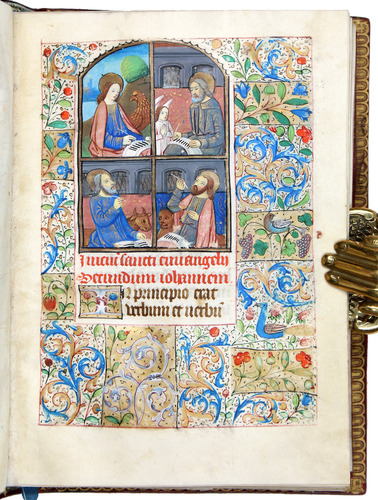 Iniciū sancti euuangelij
Secundum iohannem
In principio erat
verbum et uerbū